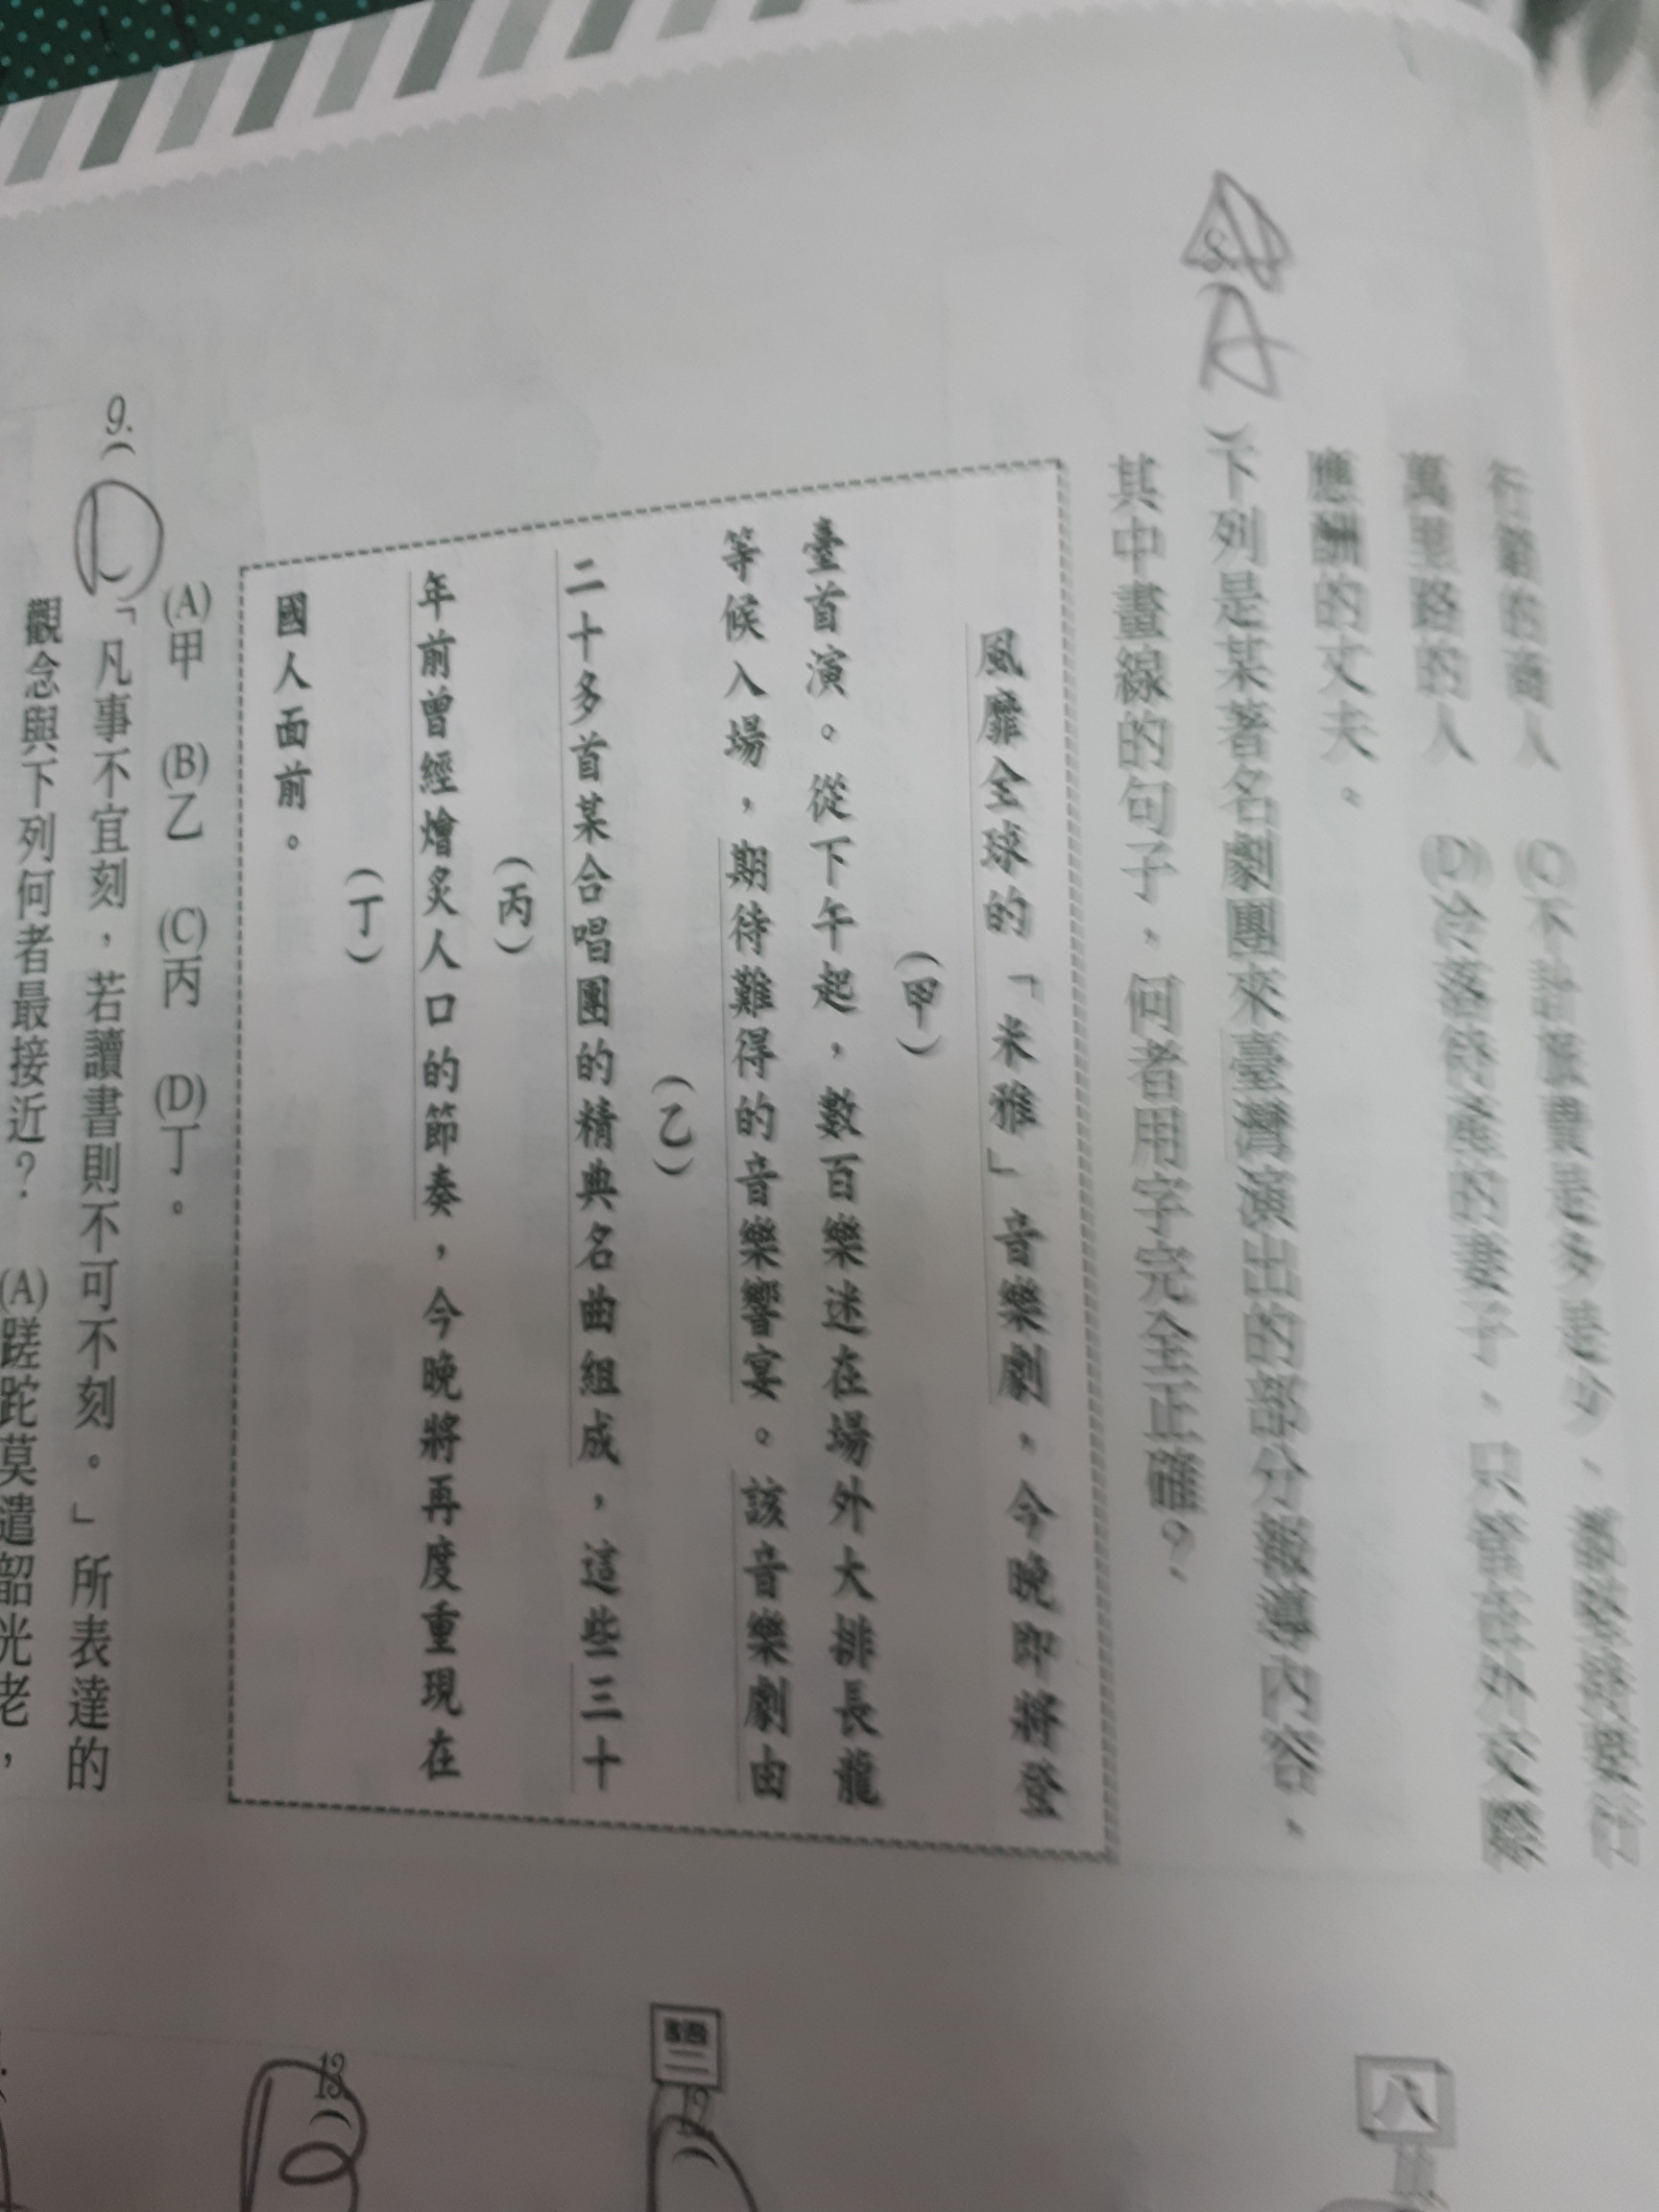 行銷的商人　(C)不計旅費是多是少，都堅持要行
萬里路的人　(D)冷落待產的妻子，只管在外交際
應酬的丈夫。
8.
A
)下列是某著名劇團來臺灣演出的部分報導內容，
其中畫線的句子，何者用字完全正確？
風靡全球的「米雅」音樂劇，今晚即將登
(甲)
臺首演。從下午起，數百樂迷在場外大排長龍
等候入場，期待難得的音樂響宴。該音樂劇由
(乙)
二十多首某合唱團的精典名曲組成，這些三十
(丙)
年前曾經燴炙人口的節奏，今晚將再度重現在
(丁)
國人面前。
(A)甲　(B)乙　(C)丙　(D)丁。
9.(
D
「凡事不宜刻，若讀書則不可不刻。」所表達的
觀念與下列何者最接近？　(A)蹉跎莫遣韶光老，
八
題
12.(
13.(
B